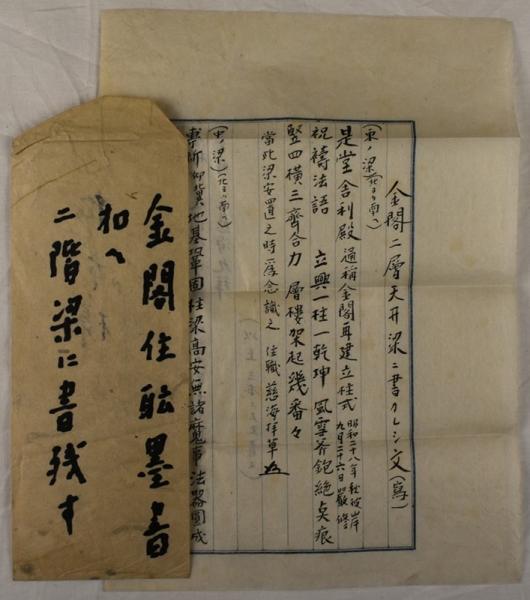 金閣二層天井梁ニ書カレシ文(寫)
(東ノ梁)(北ヨリ南ヘ)
是堂舎利殿通称金閣再建立柱式 昭和二十八年秋彼岸
九月二十六日嚴修
祝禱法語 立興一柱一乾坤 風雪斧鉋絶点痕
竪四横三齊合力 層樓架起幾番々
當此梁安置之時為念識之 住職慈海拝草
(中ノ梁)(北ヨリ南ヘ)
専祈仰冀地基鞏固柱梁高安無諸魔事法器圓成
金閣住職墨書
二階梁ニ書残す